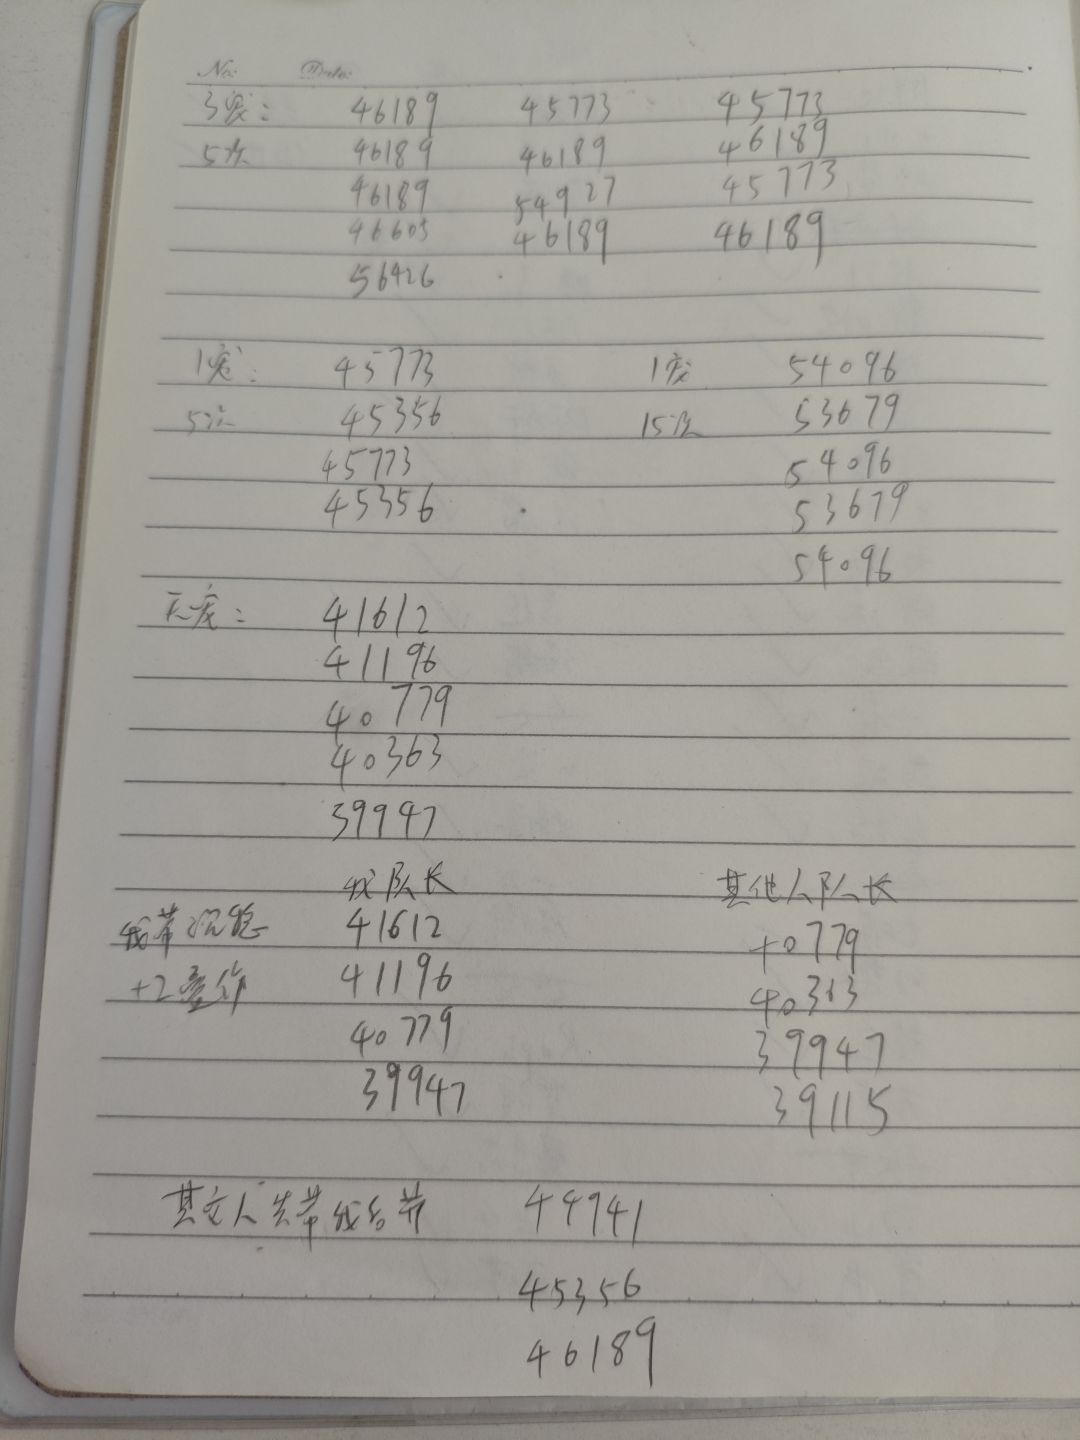 No: Date:
3宠: 46189 45773 45773
5次 46189 46189 46189
46189 54927 45773
46605 46189 46189
56426
1宠: 45773 1宠 54096
5次 45356 15次 53679
45773 54096
45356 53679
54096
无宠: 41612
41196
40779
40363
39947
我队长 其他人队长
我带 41612 40779
+2 41196 40363
40779 39947
39947 39115
人先带我后带 44941
45356
46189